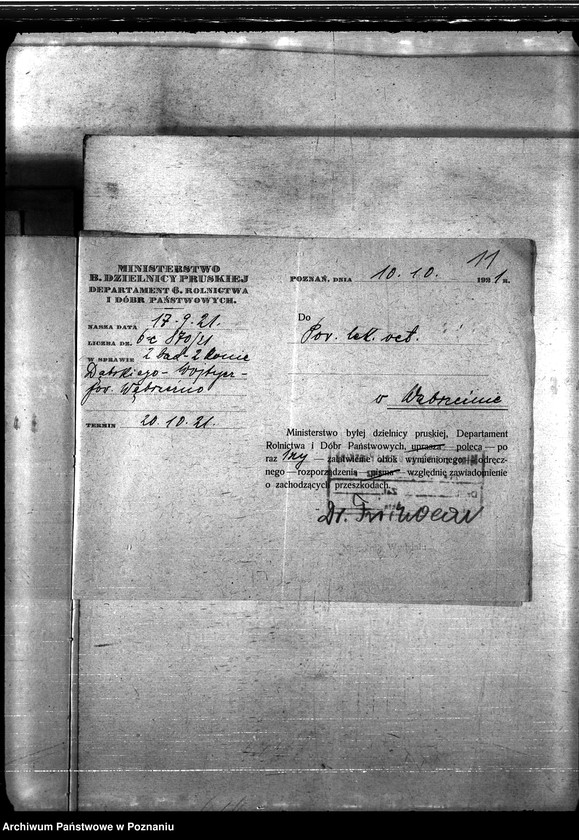 11
MINISTERSTWO
B. DZIELNICY PRUSKIEJ
DEPARTAMENT 6. ROLNICTWA
I DÓBR PAŃSTWOWYCH.
POZNAŃ, DNIA 10.10. 1921 R.
NASZA DATA 17.9.21.
LICZBA DZ. 870/21
W SPRAWIE 2 bad. 2 konie
pow. Wąbrzeźno
TERMIN 20.10.21.
Do
Pow. lek. wet.
w Wąbrzeźnie
Ministerstwo byłej dzielnicy pruskiej, Departament
Rolnictwa i Dóbr Państwowych, uprasza — poleca — po
raz 1szy — załatwienie obok wymienionego — odręcz-
nego — rozporządzenia — pisma — względnie zawiadomienie
o zachodzących przeszkodach.
Dr.
Archiwum Państwowe w Poznaniu